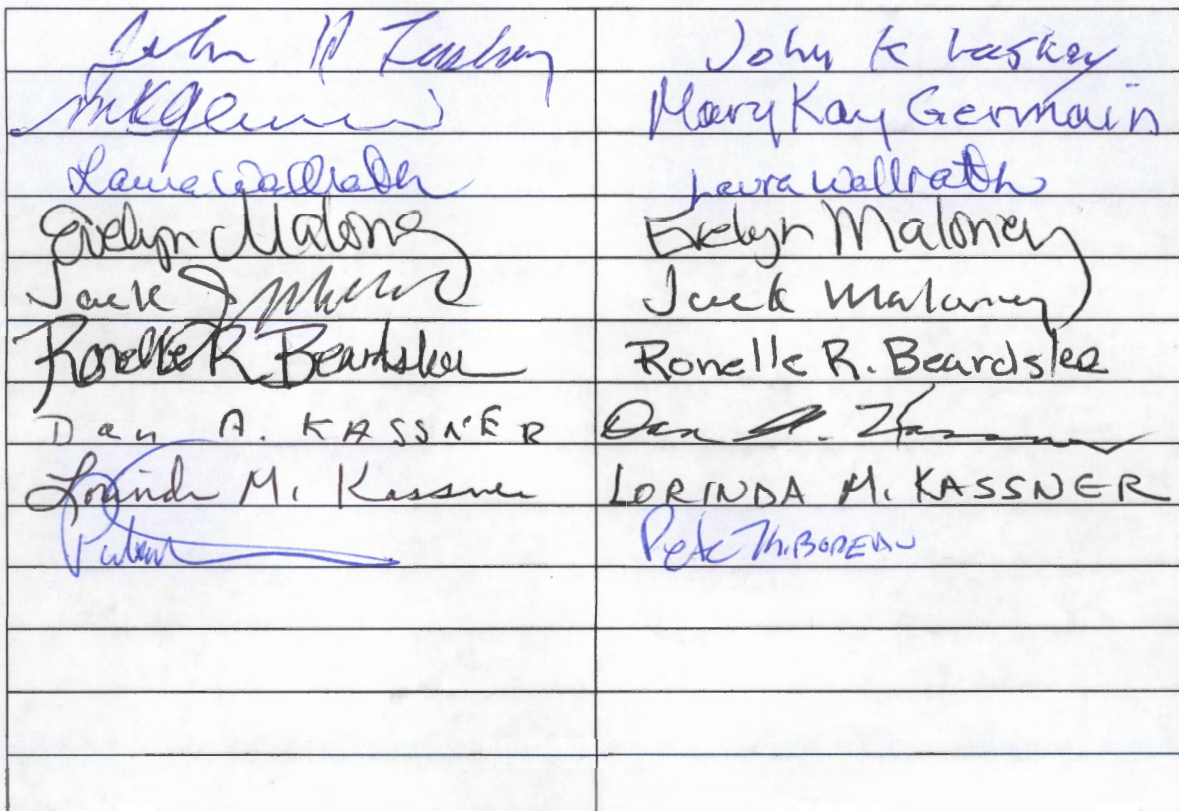 John K Laskey John K Laskey
MKGermain Mary Kay Germain
Laura Wallrath Laura Wallrath
Evelyn Maloney Evelyn Maloney
Jack Jack Maloney
Ronelle R Beardslee Ronelle R. Beardslee
Dan A. KASSNER Dan A. Kassner
Lorinda M. Kassner LORINDA M. KASSNER
Pete ThiBODEAU